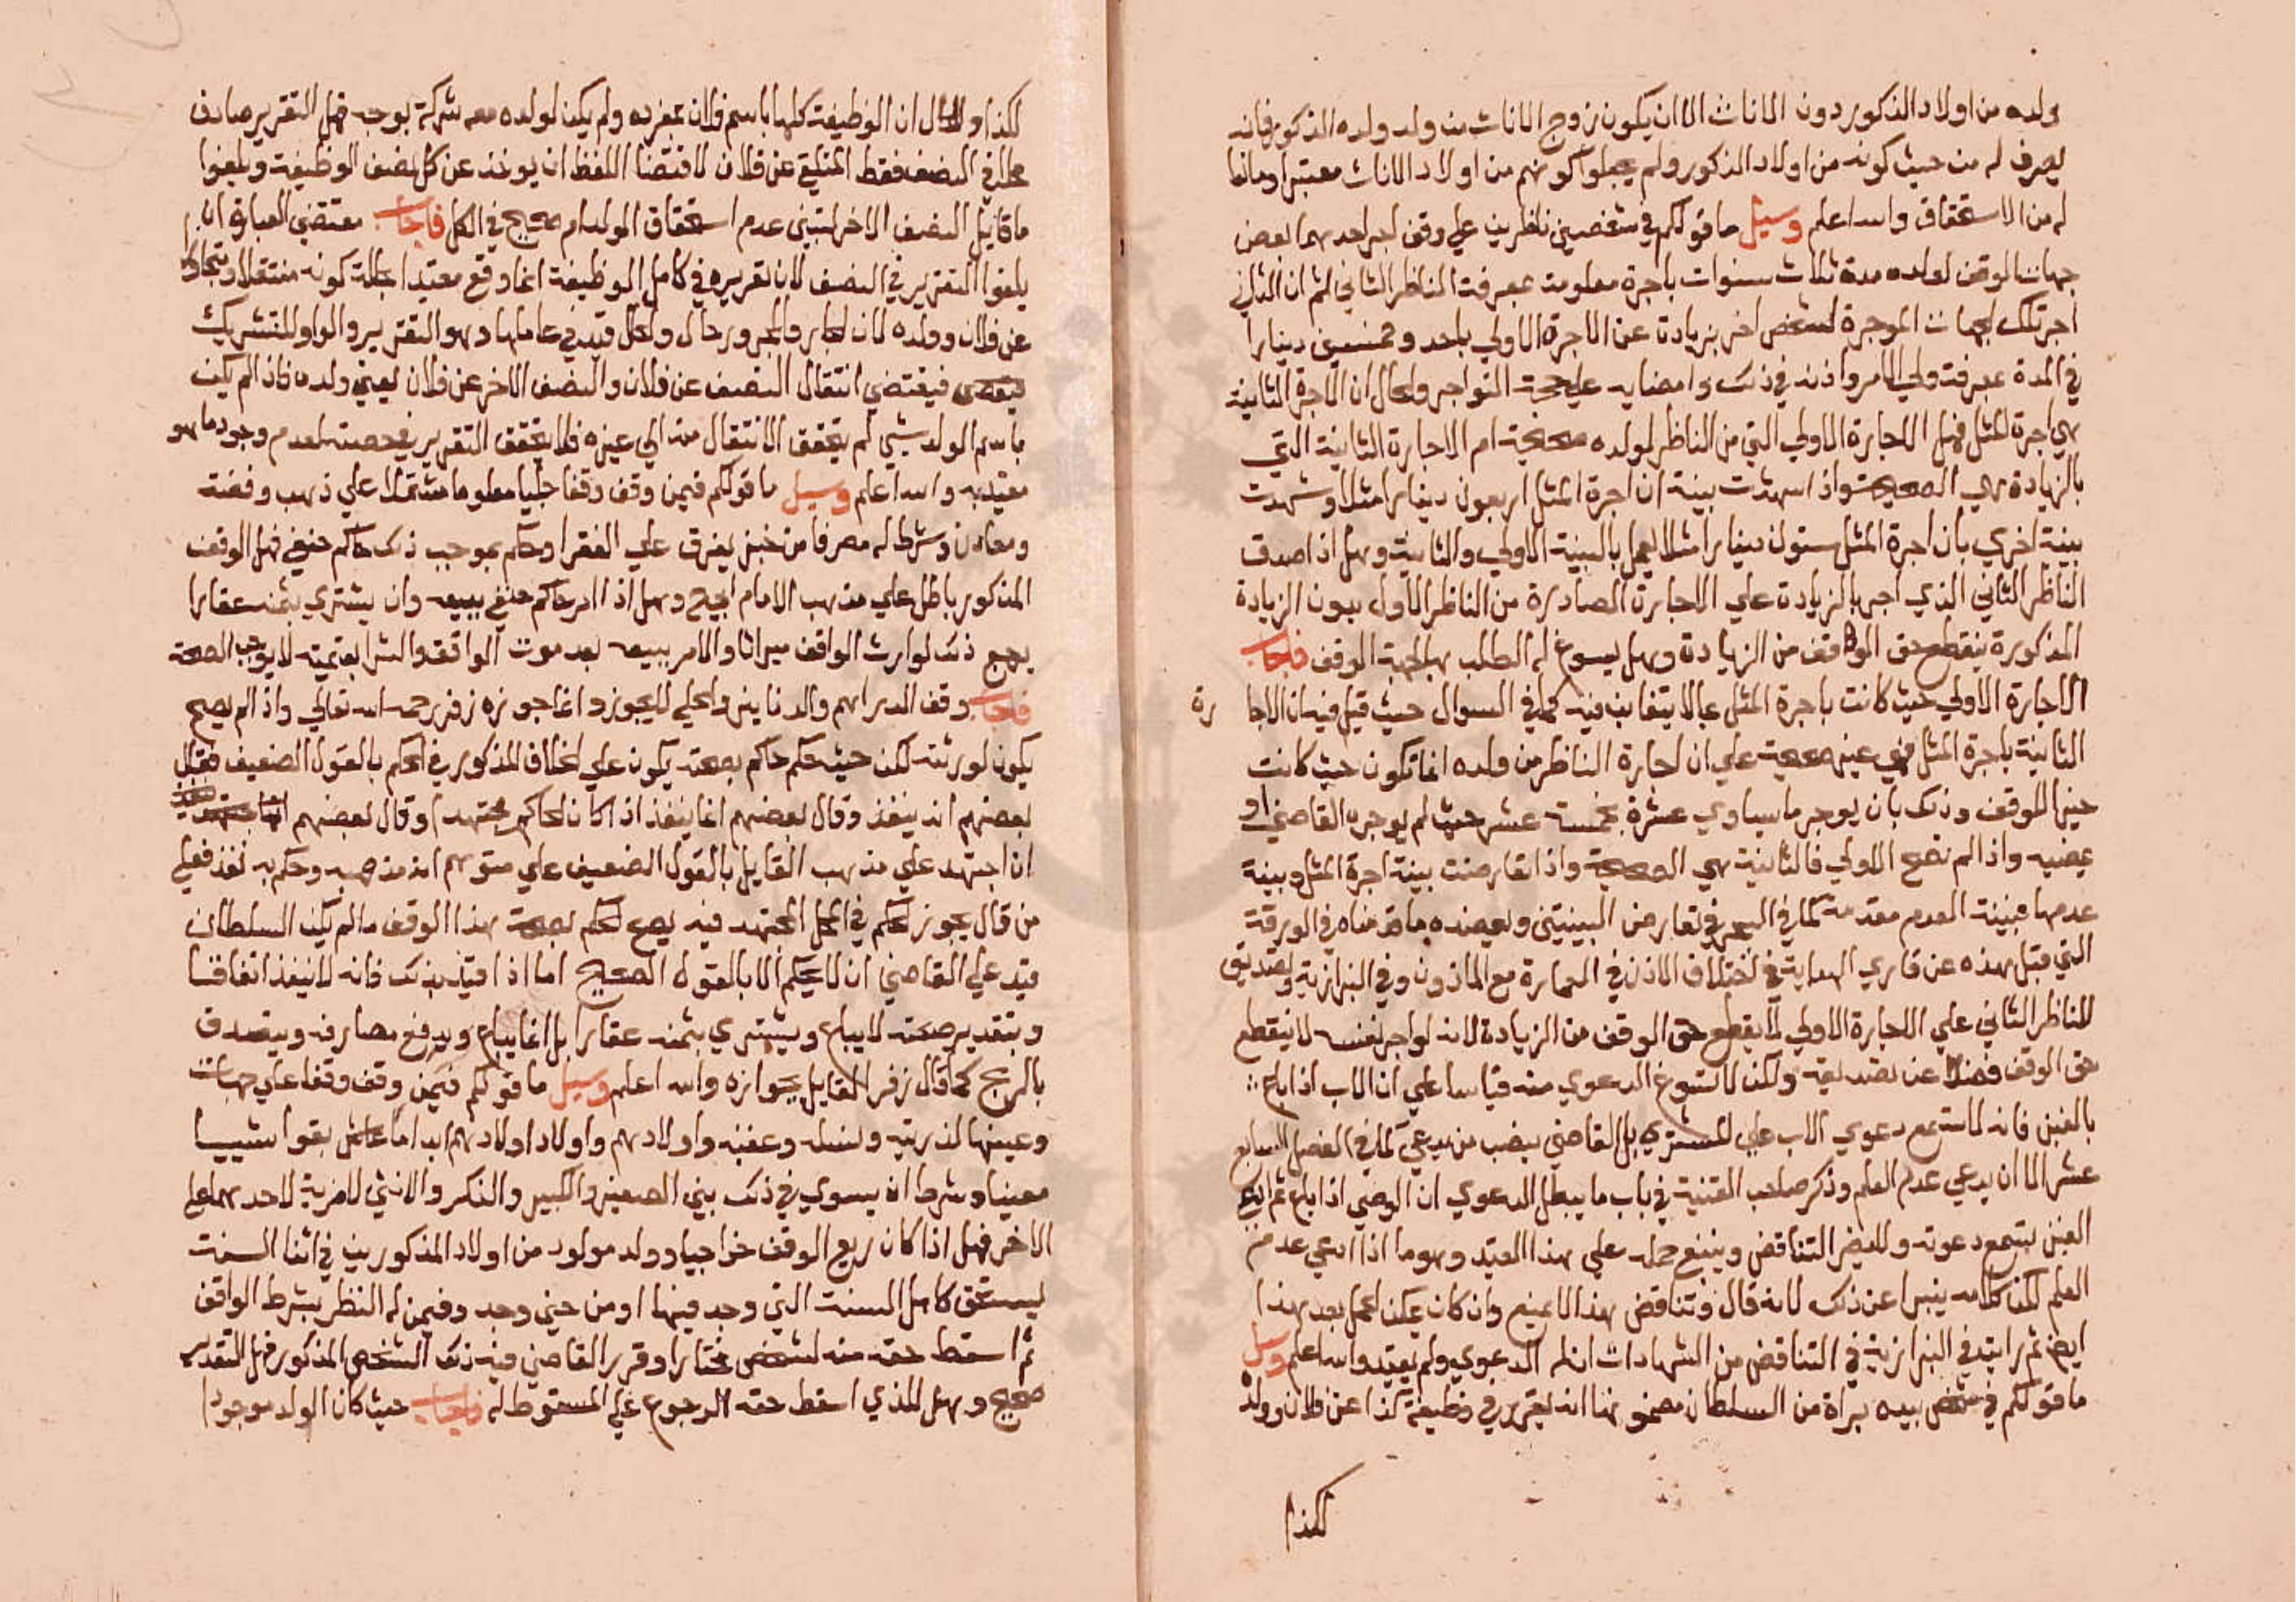 ولده من اولاد الذكور دون الاناث الا ان يكون زوج الاناث من ولد ولده الذكور فانه
يصرف له من حيث كونه من اولاد الذكور ولم يجعلوا كونهم من اولاد الاناث معتبرا ومانعا
له من الاستحقاق والله اعلم وسيل ما قولكم في شخصين ناظرين علي وقف اجر احدهما بعض
جهات الوقف لولده مدة ثلاث سنوات باجرة معلومة بمعرفت الناظر الثاني ثم ان الثاني
اجر تلك الجهات الموجرة لشخص اخر بزيادة عن الاجرة الاولي باحد وخمسين دينارا
في المدة بمعرفت ولي الامر واذنه في ذلك وامضايه علي حجة التواجر والحال ان الاجرة الثانية
هي اجرة المثل فهل الاجارة الاولي التي من الناظر لولده صحيحة ام الاجارة الثانية التي
بالزيادة هي الصحيحة واذا شهدت بينة ان اجرة المثل اربعون دينارا مثلا وشهدت
بينة اخري بان اجرة المثل ستون دينارا مثلا يعمل بالبينة الاولي والثانية وهل اذا صدق
الناظر الثاني الذي اجر بالزيادة علي الاجارة الصادرة من الناظر الاول بدون الزيادة
المذكورة ينقطع حق الواقف من الزيادة وهل يسوغ له الطلب بها لجهة الوقف فاجاب
الاجارة الاولي حيث كانت باجرة المثل بما لا يتغابن فيه كما في السوال حيث قيل فيه ان الاجا رة
الثانية باجرة المثل فهي غير صحيحة علي ان اجارة الناظر من ولده انما تكون حيث كانت
خيرا للوقف وذلك بان يوجر ما يساوي عشرة بخمسة عشر حيث لم يوجره القاضي او
يمضيه واذا لم تصح الاولي فالثانية هي الصحيحة واذا تعارضت بينة اجرة المثل وبينة
عدمها فبينة العدم مقدمة كما في البحر في تعارض البينيتين ويعضده ما قدمناه في الورقة
التي قبل هذه عن قاري الهداية في اختلاف الاذن في العمارة مع الماذون وفي البزازية وتصديق
الناظر الثاني علي الاجارة الاولي لا يقطع حق الوقف من الزيادة لانه لو اجر بنفسه لا ينقطع
حق الوقف فضلا عن تصديقه ولكن لا تسوغ الدعوي منه قياسا علي ان الاب اذا باع
بالغبن فانه لا تسمع دعوي الاب علي المشتري بل القاضي ينصب من يدعي كما في الفصل السابع
عشر الا ان يدعي عدم العلم وذكر صاحب القنية في باب ما يبطل الدعوي ان الوصي اذا باع ثم ادعي
الغبن تسمع دعوته ولا يضر التناقض وينبغي حمله علي هذا القيد وهو ما اذا ادعي عدم
العلم لكن كلامه ينبوا عن ذلك لانه قال وتناقض هذا لا يمنع وان كان يمكن الحمل بعد هذا
ايضا ثم رايته في البزازية في التناقض من الشهادات ان له الدعوي ولم يقيد والله اعلم وسيل
ما قولكم في شخص بيده براة من السلطان مضمونها انه يقرر في وظيفة كذا عن فلان وولده
لكذا
لكذا والحال ان الوظيفة كلها باسم فلان بمفرده ولم يكن لولده معه شركة بوجه فهل التقرير صادف
محلا في النصف فقط المتلقي عن فلان لاقتضا اللفظ ان يوخذ عن كل نصف الوظيفة ويلغوا
ما قابل النصف الاخر لتبيني عدم استحقاق الولد ام صحيح في الكل فاجاب مقتضي العبارة ان
يلغوا التقرير في النصف لان تقريره في كامل الوظيفة انما وقع مقيدا بحالة كونه منتقلا ومتجاوزا
عن فلان وولده لان الجار والمجرور حال والحال قيد في عاملها وهو التقرير والواو للتشريك
فيقتضي انتقال النصف عن فلان والنصف الاخر عن فلان يعني ولده فاذا لم يكن
باسم الولد شيي لم يتحقق الانتقال منه الي غيره فلا يتحقق التقرير في حصته لعدم وجود ما هو
مقيد به والله اعلم وسيل ما قولكم فيمن وقف وقفا حليا معلوما مشتملا علي ذهب وفضة
ومعادن وشرط له مصرفا من خبز يفرق علي الفقرا وحكم بموجب ذلك حاكم حنفي فهل الوقف
المذكور باطل علي مذهب الامام ابي ح وهل اذا امر حاكم حنفي ببيعه وان يشتري بثمنه عقارا
يرجع ذلك لوارث الواقف ميراثا والامر ببيعه بعد موت الواقف والشرا بقيمته لا يوجب الصحة
فاجاب وقف الدراهم والدنانير والحلي لا يجوز وانما جوزه زفر رحمه الله تعالي واذا لم يصح
يكون لورثته لكن حيث حكم حاكم بصحته يكون علي الخلاف المذكور في الحكم بالقول الضعيف فقال
بعضهم انه ينفذ وقال بعضهم انما ينفذ اذا كان الحاكم مجتهدا وقال بعضهم
ان اجتهد علي مذهب القايل بالقول الضعيف علي متوهم انه مذهبه وحكم به نفذ فعلي
من قال يجوز الحكم في المحل المجتهد فيه يصح الحكم بصحة هذا الوقف ما لم يكن السلطان
قيد علي القاضي ان لا يحكم الا بالقول الصحيح اما اذا قيد بذلك فانه لا ينفذ اتفاقا
وبتقدير صحته لا يباع ويشتري بثمنه عقارا بل انما يباع ويدفع مضاربة ويتصدق
بالربح كما قال زفر القايل بجوازه والله اعلم وسيل ما قولكم فيمن وقف وقفا علي جهات
وعينها لذريته ونسله وعقبه واولادهم واولاد اولادهم ابدا ما بقوا شييا
معينا وشرط ان يسوي في ذلك بين الصغير والكبير والذكر والانثي لا مزية لاحدهما علي
الاخر فهل اذا كان ريع الوقف خراجيا وولد مولود من اولاد المذكورين في اثنا السنة
يستحق كامل السنة التي وجد فيها او من حين وجد وفيمن له النظر بشرط الواقف
ثم اسقط حقه منه لشخص مختارا وقرر القاضي فيه ذلك الشخص المذكور فهل التقدير
صحيح وهل للذي اسقط حقه الرجوع علي المسقوط له فاجاب حيث كان الولد موجودا